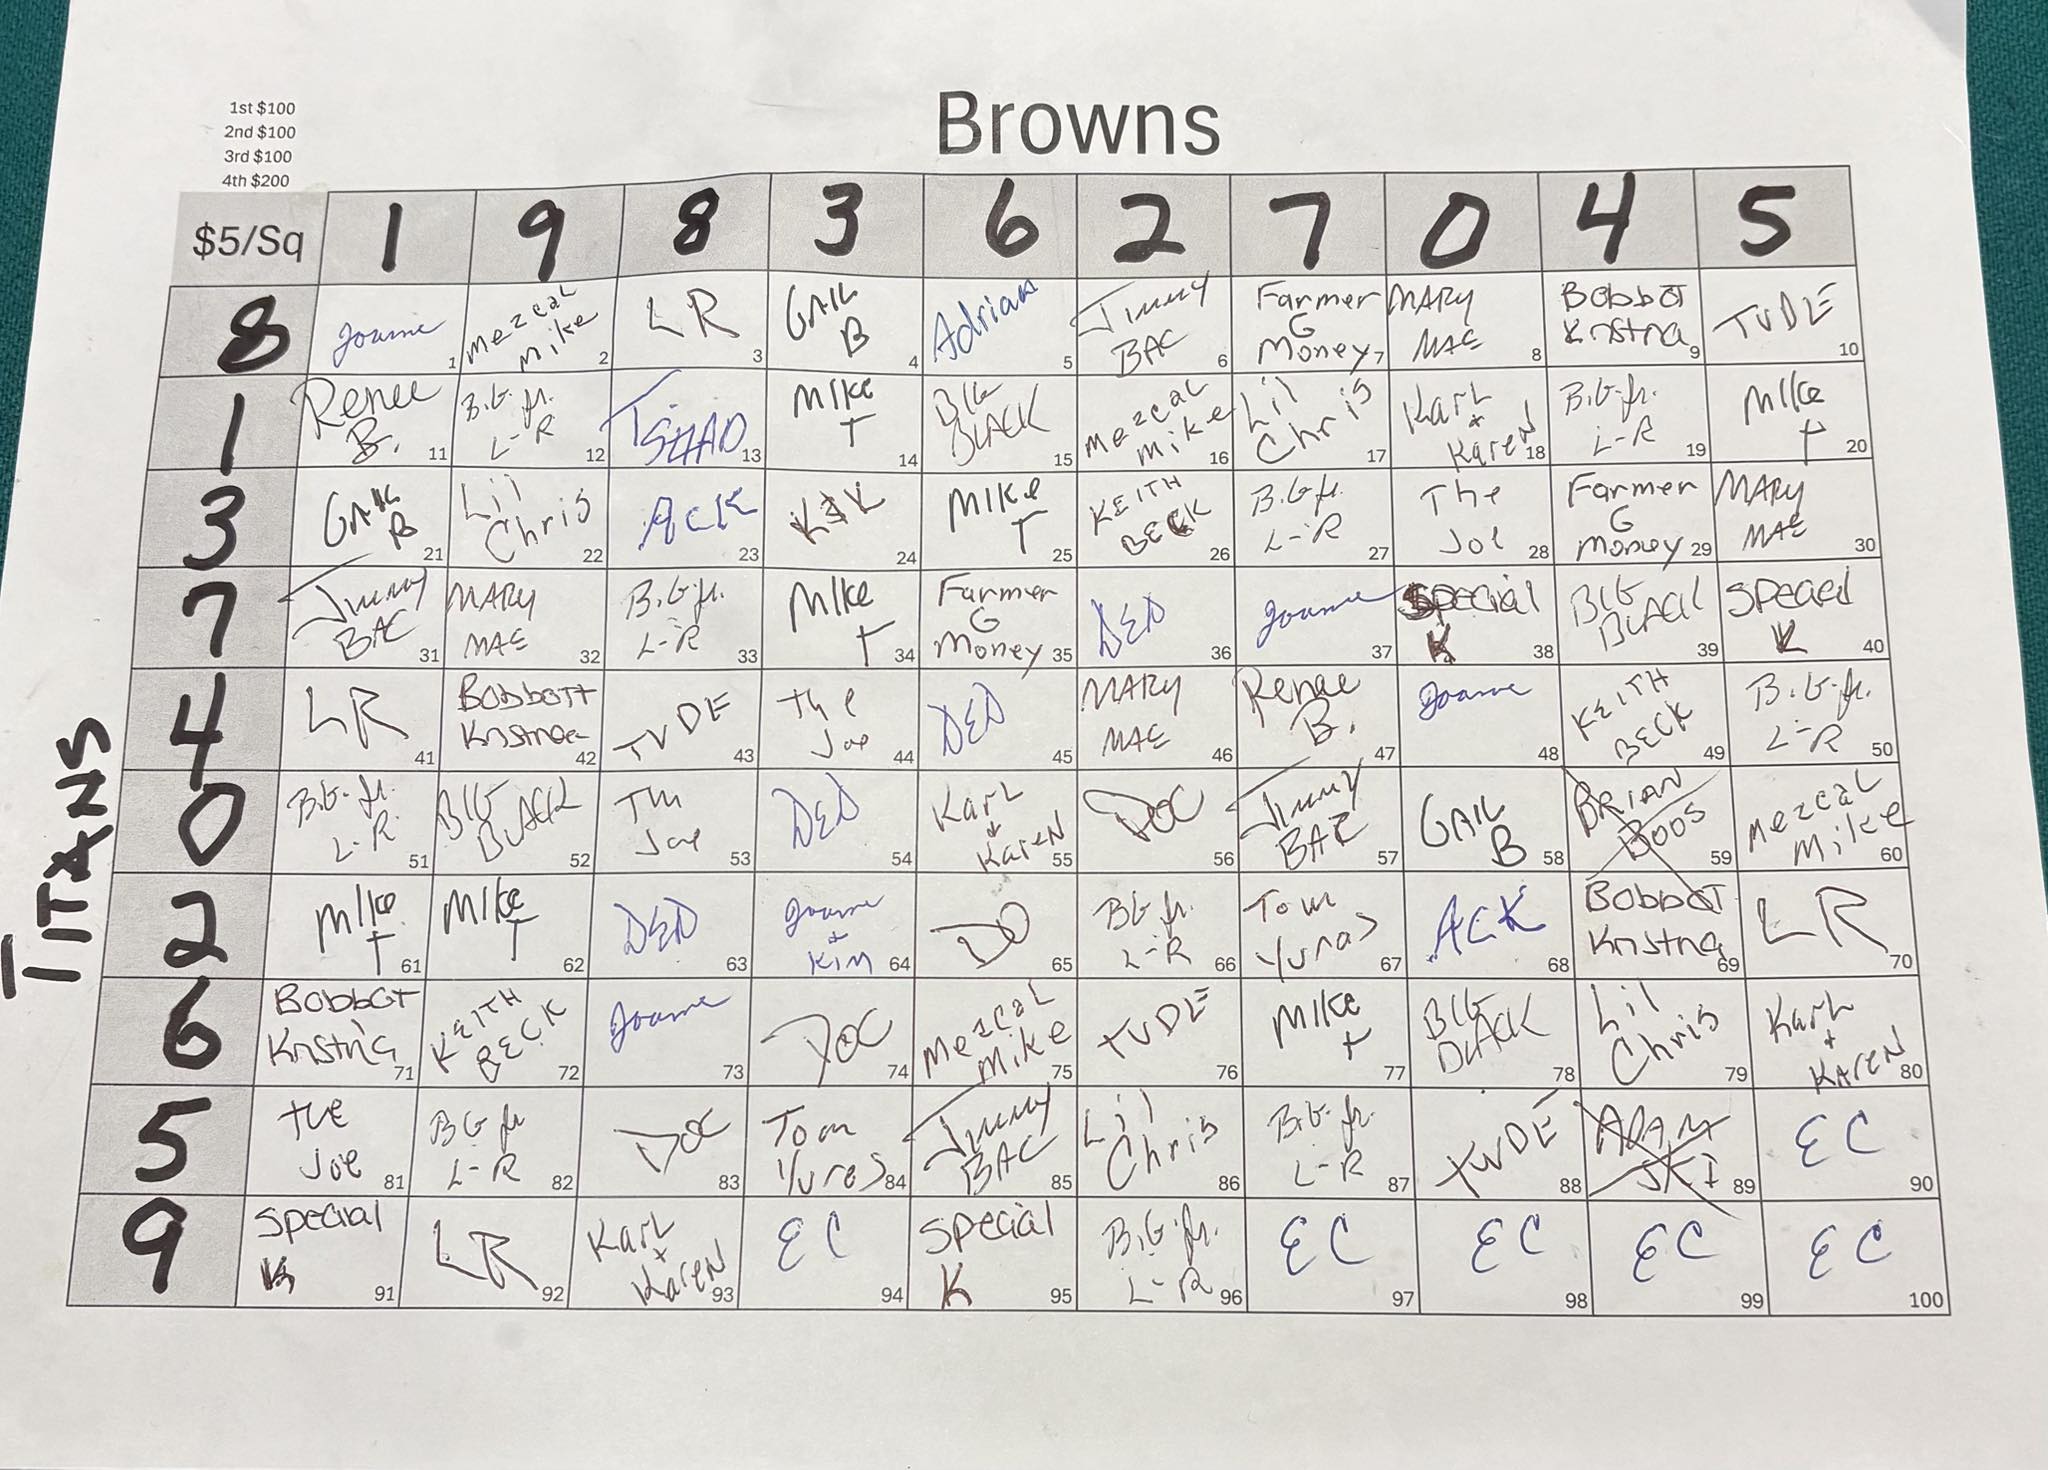 1st $100
2nd $100
3rd $100
4th $200
Browns
$5/Sq 1 9 8 3 6 2 7 0 4 5
TITANS
8 Joanne 1 Mezcal Mike 2 LR 3 GAIL B 4 Adrian 5 Jimmy BAC 6 Farmer G Money 7 MARY MAE 8 Bobbot Kristina 9 TUDE 10
1 Renee B. 11 B.G. Jr. L-R 12 TSHAD 13 MIke T 14 BIG BLACK 15 Mezcal Mike 16 Lil Chris 17 Karl + Karen 18 B.G. Jr. L-R 19 MIke T 20
3 GAIL B 21 Lil Chris 22 ACK 23 K&K 24 MIke T 25 KEITH BECK 26 B.G. Jr. L-R 27 The Joe 28 Farmer G Money 29 MARY MAE 30
7 Jimmy BAC 31 MARY MAE 32 B.G. Jr. L-R 33 MIke T 34 Farmer G Money 35 DED 36 Joanne 37 Special K 38 BIG BLACK 39 Special K 40
4 LR 41 Bobbott Kristina 42 TUDE 43 The Joe 44 DED 45 MARY MAE 46 Renee B. 47 Joanne 48 KEITH BECK 49 B.G. Jr. L-R 50
0 B.G. Jr. L-R 51 BIG BLACK 52 The Joe 53 DED 54 Karl + Karen 55 DOC 56 Jimmy BAC 57 GAIL B 58 BRIAN BOOS 59 Mezcal Mike 60
2 MIke T 61 MIke T 62 DED 63 Joanne + KIM 64 DO 65 BG Jr. L-R 66 Tom Yuras 67 ACK 68 Bobbot Kristina 69 LR 70
6 Bobbot Kristina 71 KEITH BECK 72 Joanne 73 DOC 74 Mezcal Mike 75 TUDE 76 MIke T 77 BIG BLACK 78 Lil Chris 79 Karl + Karen 80
5 The Joe 81 BG Jr L-R 82 DOC 83 Tom Yuras 84 Jimmy BAC 85 Lil Chris 86 B.G. Jr. L-R 87 TUDE 88 ADAM 89 EC 90
9 Special K 91 LR 92 Karl + Karen 93 EC 94 Special K 95 B.G. Jr. L-R 96 EC 97 EC 98 EC 99 EC 100